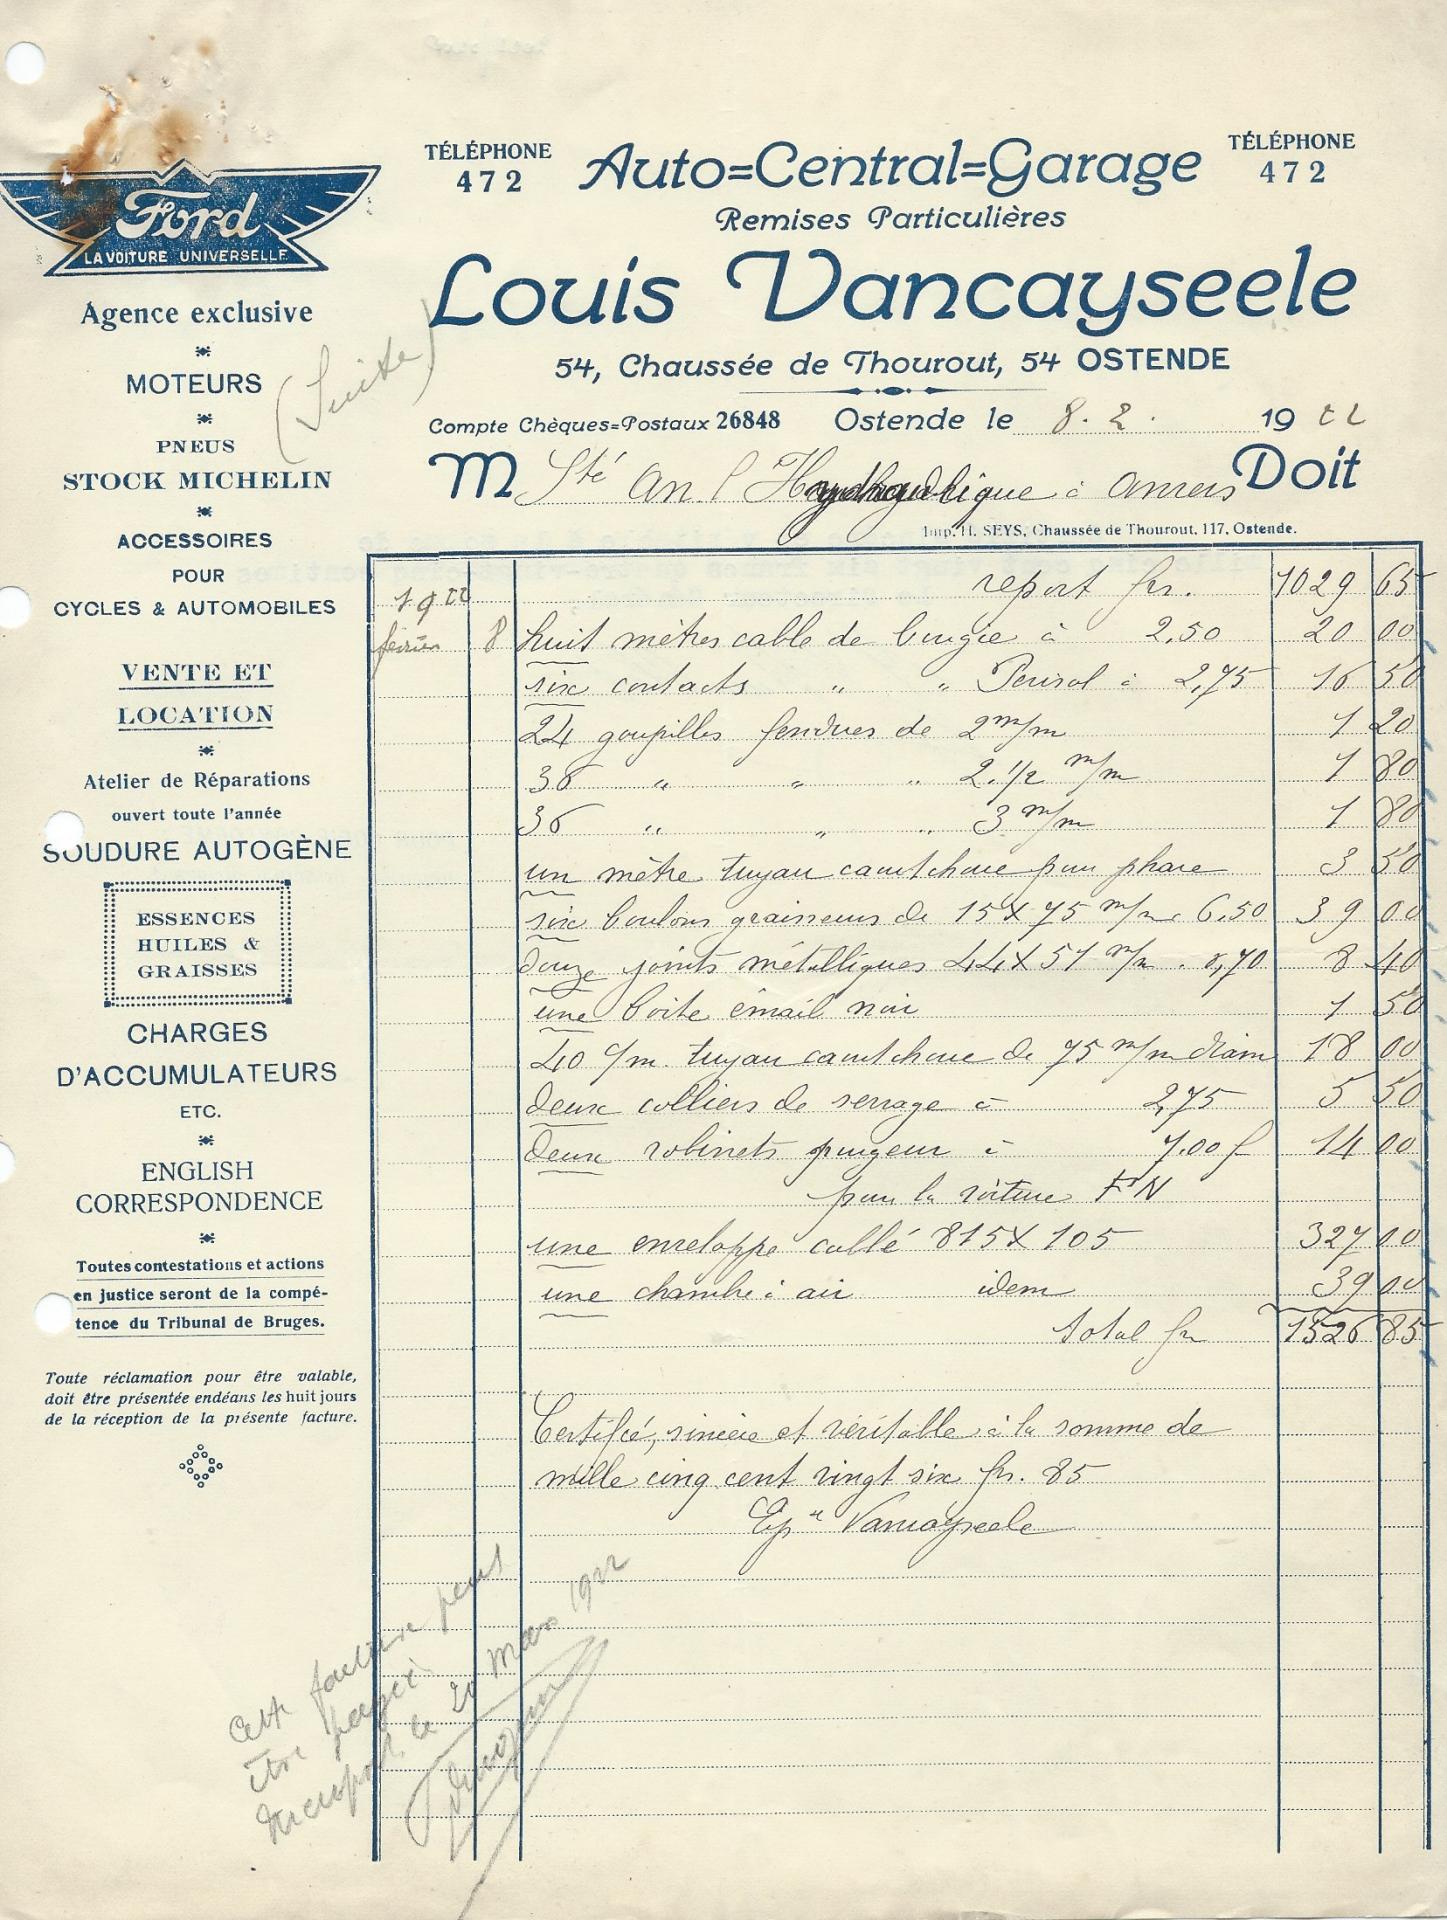 TÉLÉPHONE
472
Auto=Central=Garage
TÉLÉPHONE
472
Remises Particulières
Louis Vancayseele
54, Chaussée de Thourout, 54 OSTENDE
Compte Chèques=Postaux 26848
Ostende le 8.2. 1922
M Sté An l'Hydraulique à Anvers Doit
Imp. H. SEYS, Chaussée de Thourout, 117, Ostende.
Ford
LA VOITURE UNIVERSELLE
Agence exclusive
MOTEURS
(Suite)
PNEUS
STOCK MICHELIN
ACCESSOIRES
POUR
CYCLES & AUTOMOBILES
VENTE ET
LOCATION
Atelier de Réparations
ouvert toute l'année
SOUDURE AUTOGÈNE
ESSENCES
HUILES &
GRAISSES
CHARGES
D'ACCUMULATEURS
ETC.
ENGLISH
CORRESPONDENCE
Toutes contestations et actions
en justice seront de la compé-
tence du Tribunal de Bruges.
Toute réclamation pour être valable,
doit être présentée endéans les huit jours
de la réception de la présente facture.
1922 report fr. 1029 65
février 8 huit mètres cable de bougie à 2,50 20 00
six contacts " " à 2,75 16 50
24 goupilles fendues de 2 m/m 1 20
36 " " " 2.1/2 m/m 1 80
36 " " " 3 m/m 1 80
un mètre tuyau caoutchouc pour phare 3 50
six boulons graisseurs de 15X75 m/m 6.50 39 00
douze joints métalliques 44X51 m/m . 0,70 8 40
une boite émail noir 1 50
40 c/m. tuyau caoutchouc de 75 m/m diam 18 00
deux colliers de serrage à 2,75 5 50
deux robinets purgeur à 7.00 f 14 00
pour la voiture FN
une enveloppe cablé 815X105 327 00
une chambre à air idem 39 00
total fr 1526 85
Certifié, sincère et véritable à la somme de
mille cinq cent vingt six fr. 85
Vancayseele
Cette facture peut
être payée
Nieuport, le 20 Mars 1922